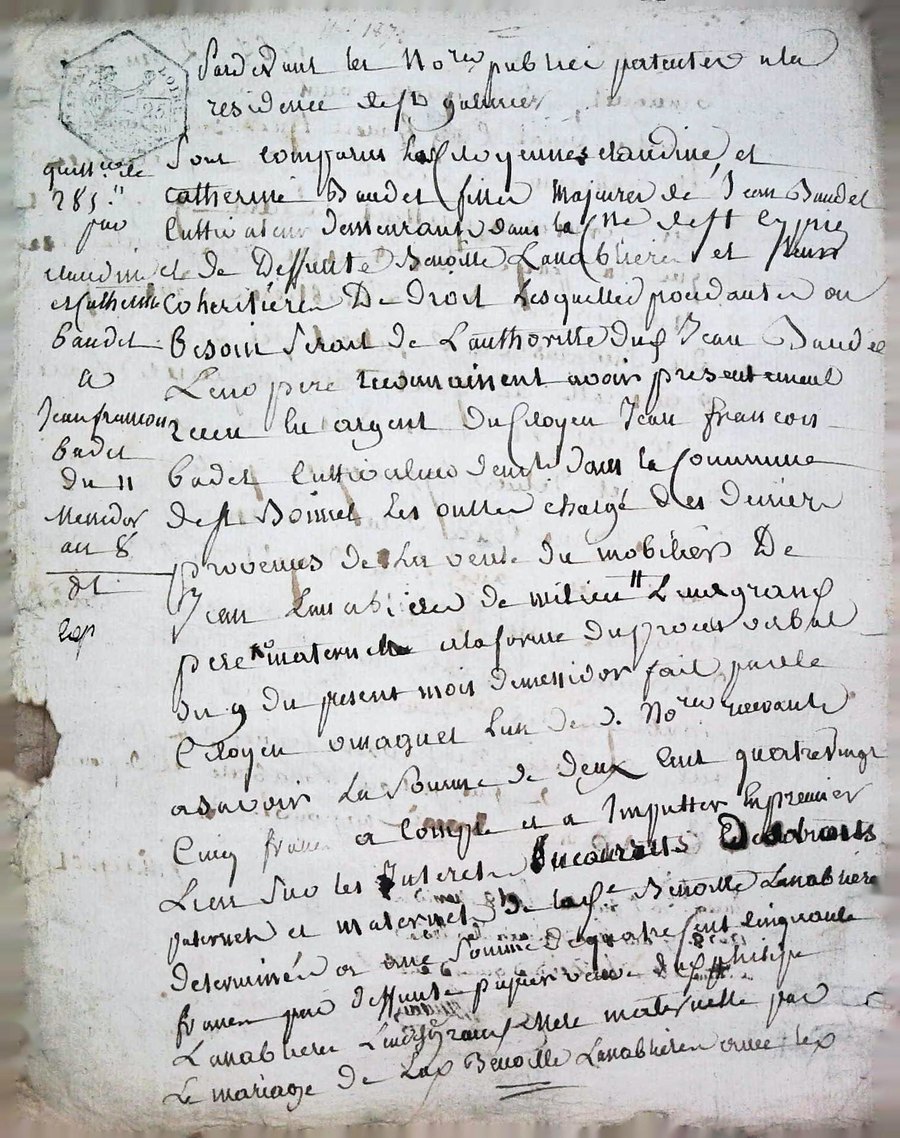 Pardevant les No.res publics patentés a la
residence de St galmier
Sont comparus les Citoyennes claudine, et
catherine Baudet filles majeures de Jean Baudet
Cultivateur demeurante dans la Cne de St
et de Deffunte Benoitte Lanablieres et
coheritieres De droit Lesquelles ou
besoin Seroit de Lauthoritté dud Jean Baudet
Leur pere reconnaissent avoir presentement
recu en argent du Citoyen Jean francois
badet Cultivateur demt dans la Commune
de St Bonnet Les oulles chargé des deniers
provenus de la vente du mobiliers De
Jean Lanablieres de milieu Leur grand
pere maternelle a la forme du proces verbal
du 9 du present mois de messidor fait par le
Citoyen Lun de d. No.res recevants
asavoir La Somme de deux cent quatrevingt
Cinq francs a Compte et a Imputter En premier
Lieu Sur les Interets Encourrus Des droits
paternels et maternels de lad.e Benoitte Lanabliere
determinés a une Somme de quatre cent cinquante
francs par deffunte veuve de philipe
Lanablieres Leur grand Mere maternelle par
Le mariage de Lad Benoitte Lanablieres avec led
quittance de
285.#
par
claudine
et Catherine
baudet
a
Jean francois
badet
du 11
Messidor
an 8